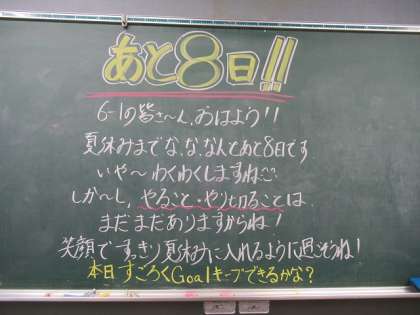 あと8日!!
6-1の皆さ〜ん、おはよう!!
夏休みまでな、な、なんとあと8日です
いや〜わくわくしますね
しか〜し、やること・やり切ることは、
まだまだありますからね!
笑顔ですっきり夏休みに入れるように過ごそうね!
本日すごろくGoalキープできるかな?